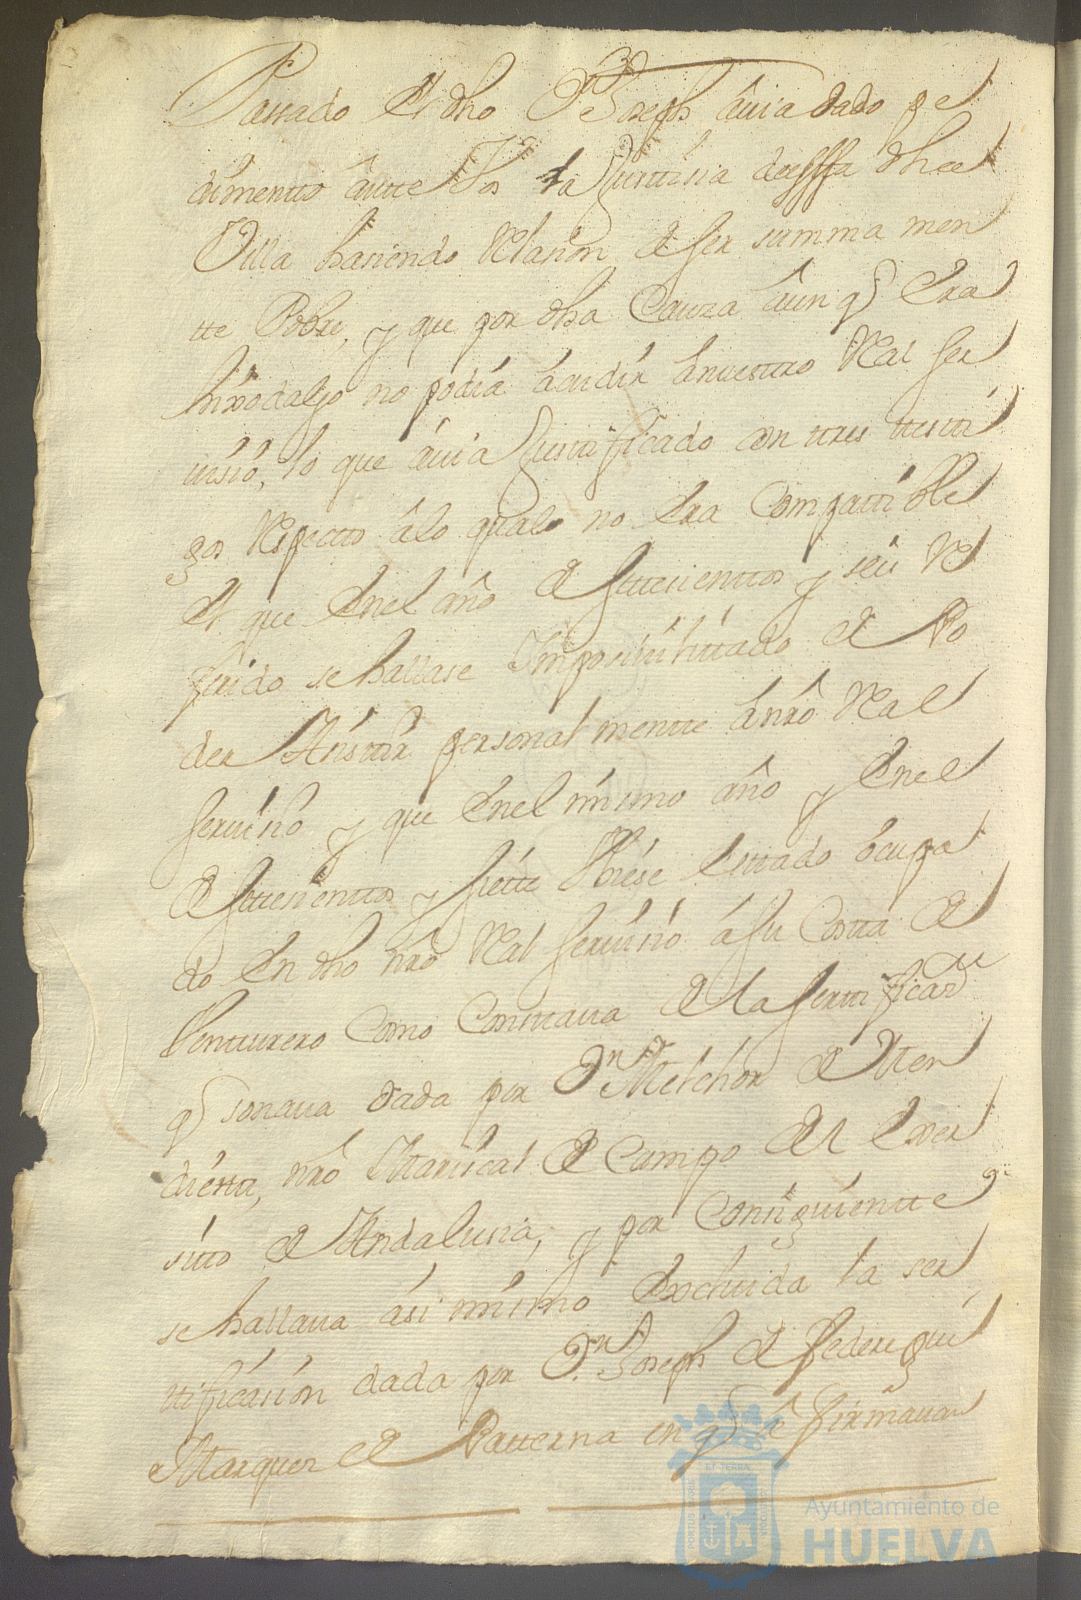 Passado el dho Dn Joseph âuia dado pe
dimentto antte Vos la Justtisia de essa dha
Villa hasiendo Relasion de ser summa men
tte Pobre, y que por dha Cauza âun q̃ Era
hixodalgo no podia âcudir ânuesttro Real ser
uisio, lo que âuia Justtificado con ttres ttestti
gos Respectto âlo qual no Era Compattible
el que Enel año de settesienttos y seis Re
ferido se hallase Imposiuilittado de Po
der Asisttir personal mentte ânrô Real
seruisio y que Enel mismo año y Enel
de settesienttos y siette Vbiese Esttado ôcupa
do En dho nrô Real seruisio â su Costta de
Ventturero Como Consttaua de la serttificasn
q̃ sonaua dada por Dn Melchor de Auen
diettu, nrô Mariscal de Campo del Exer
sitto de Andalusia, y por Consiguientte
se hallaua âsi mismo Excluida la ser
ttificasion dada por Dn Joseph de federigui
Marques de Patterna en q̃ se firmaua
PORTUS MARIS
ET TERRA
CUSTODIA
Ayuntamiento de
HUELVA